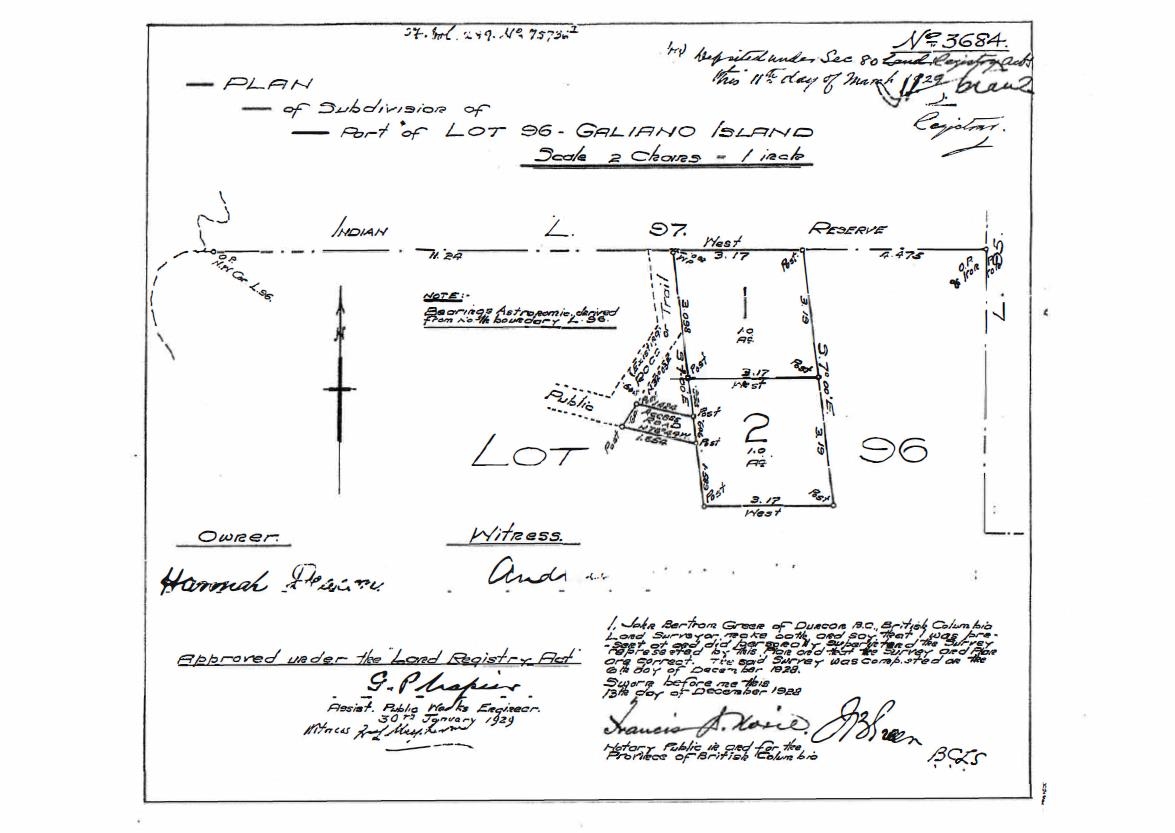 No 3684.
Deposited under Sec 80 Land Registry Act
this 11th day of March 1929
Registrar.
PLAN
of Subdivision of
Part of LOT 96 - GALIANO ISLAND
Scale 2 Chains = 1 inch
INDIAN L. 97. RESERVE
West
11.24 3.17 4.475
O.P.
N.W Cor L.96.
Post
O.P.
L. 95.
NOTE:-
Bearings Astronomic, derived
from North boundary L. 96.
or Trail
Existing
1
1.0
Ac.
3.098
3.19
S.7°00'E
S.7°00'E
Post
Post
3.17
West
Public
ROAD
ACCESS
ROAD
1.654
Post
Post
Post
2
1.0
Ac.
3.19
LOT 96
Post
Post
3.17
West
Owner.
Witness.
Hannah
Approved under the "Land Registry Act"
Assist. Public Works Engineer.
30th January 1929
Witness
I, John Bertram Green of Duncan B.C., British Columbia
Land Surveyor, make oath and say that I was pre-
-sent at and did personally superintend the Survey
represented by this Plan and that the Survey and Plan
are correct. The said Survey was completed on the
6th day of December 1928.
Sworn before me this
13th day of December 1928
Francis
JBGreen
B.C.L.S
Notary Public in and for the
Province of British Columbia